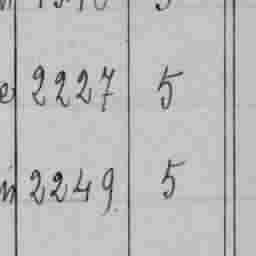 2227 5
2249 5